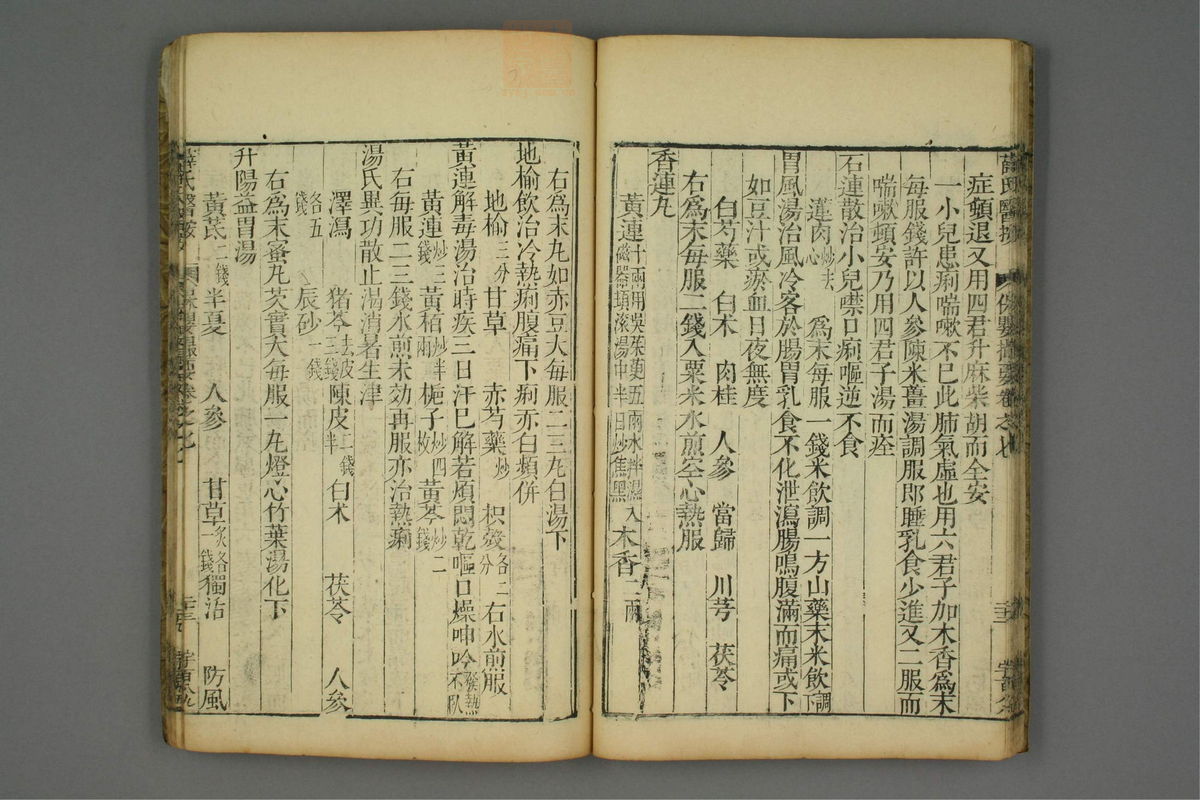 症頓退又用四君升麻柴胡而全安
一小兒患痢喘嗽不巳此肺氣虛也用六君子加木香為末
每服錢許以人參陳米薑湯調服即睡乳食少進又二服而
喘嗽頓安乃用四君子湯而痊
石連散治小兒噤口痢嘔逆不食
蓮肉炒去心 為末每服一錢米飲調一方山藥末米飲調下
胃風湯治風冷客於腸胃乳食不化泄瀉腸鳴腹滿而痛或下
如豆汁或瘀血日夜無度
白芍藥 白术 肉桂 人參 當歸 川芎 茯苓
右為末每服二錢入粟米水煎空心熱服
香連丸
黃連十兩用吳茱萸五兩水拌濕磁器頓滾湯中半日炒焦黑入木香二兩
右為末丸如赤豆大每服二三丸白湯下
地榆飲治冷熱痢腹痛下痢赤白頻併
地榆三分 甘草 赤芍藥炒 枳殼各二分 右水煎服
黃連解毒湯治時疾三日汗巳解若煩悶乾嘔口燥呻吟發熱不臥
黃連炒三錢 黃栢炒半兩 梔子炒四枚 黃芩炒二錢
右每服二三錢水煎未効再服亦治熱痢
湯氏異功散止渴消暑生津
澤瀉 猪苓去皮三錢 陳皮二錢半 白术 茯苓 人參
各五錢 辰砂一錢
右為末蜜丸芡實大每服一丸燈心竹葉湯化下
升陽益胃湯
黃芪二錢 半夏 人參 甘草炙各一錢 獨活 防風